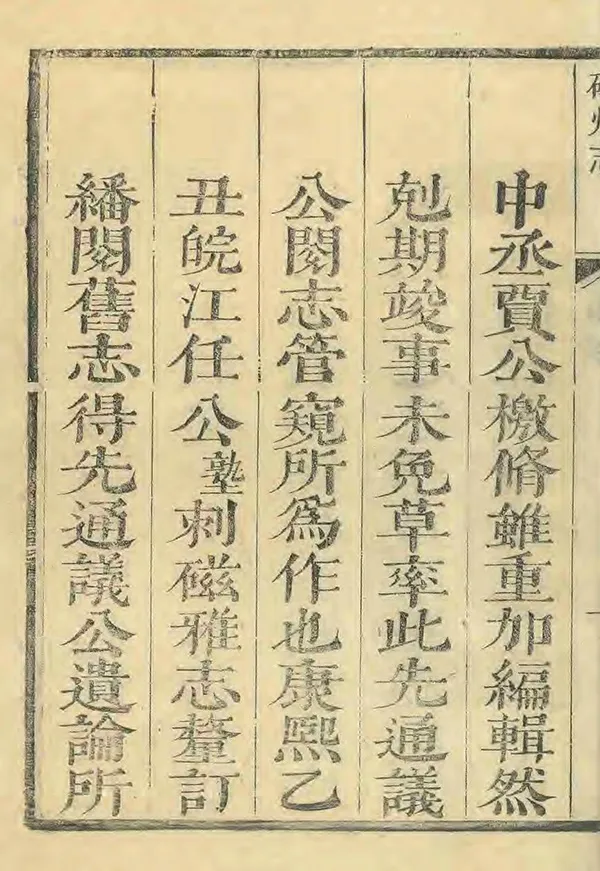 磁州志
中丞賈公檄脩雖重加編輯然
剋期竣事未免草率此先通議
公閱志管窺所爲作也康熙乙
丑皖江任公塾刺磁雅志釐訂
繙閱舊志得先通議公遺論所